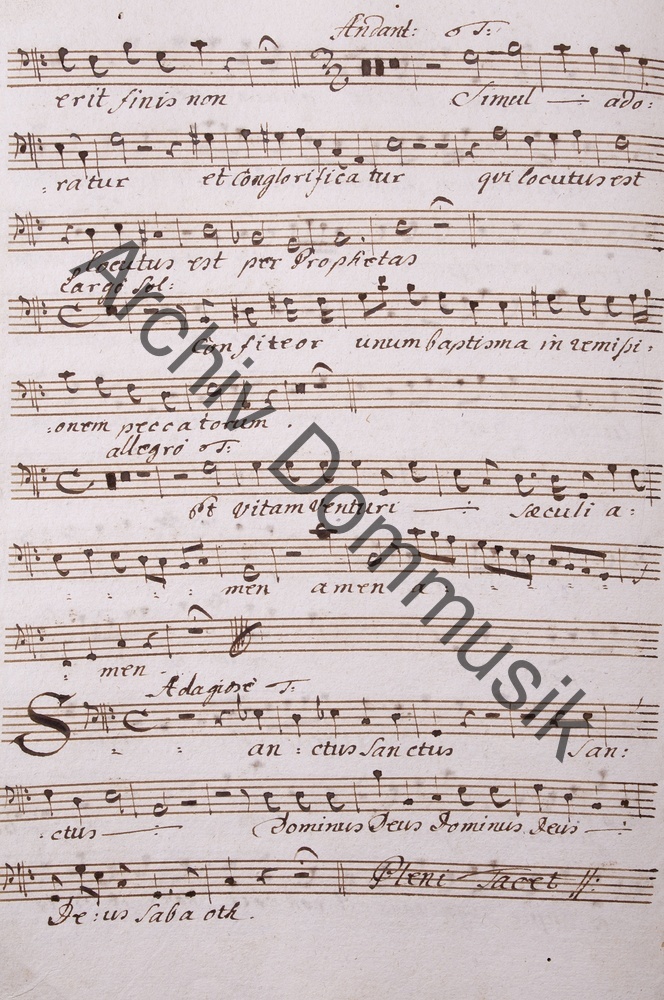 Andant: T:
erit finis non Simul ado:
:ratur et Conglorificatur qui locutus est
locutus est per Prophetas
Largo Sol:
Confiteor unum baptisma in remisi:
:onem peccatorum.
allegro T:
et vitam Venturi sæculi a:
men amen a:
men.
Adagiose T:
San:ctus Sanctus San:
ctus Dominus Deus Dominus Deus
De:us Sabaoth. Pleni Tacet
Archiv Dommusik